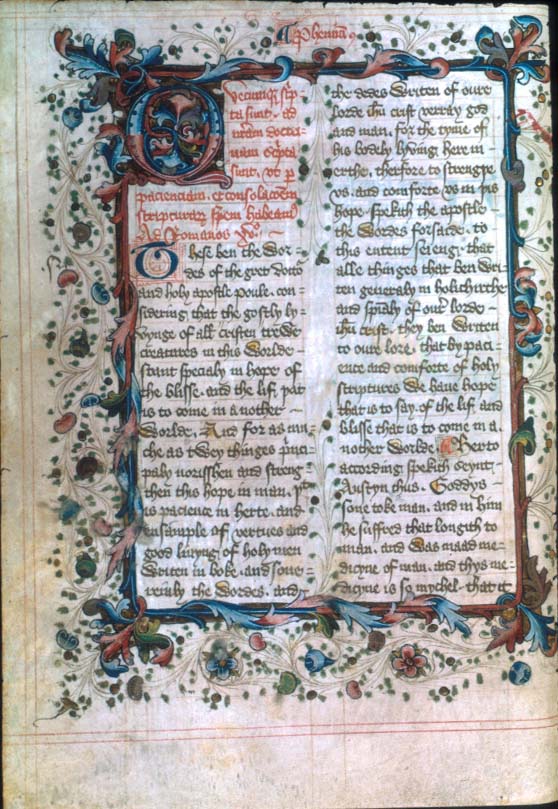 Prohemiu
Quecumque scrip
ta sunt. ad
nram doctri
nam scripta
sunt. vt p
pacienciam. et consolacoem
scripturarum spem habeam
Ad Romanos xvo
These ben the wor
des of the gret docto
and holy apostle poule. con
sidering that the gostly ly
vynge of all cristen trewe
creatures in this worlde
stant specialy in hope of
the blisse. and the lif. þat
is to come in a nother
worlde. And for as mi
che as twey thinges princi
paly norisshen and streng
then this hope in man. þt
is pacience in herte. and
ensample of vertues and
good liuyng of holy men
writen in boke. and soue
reinly the wordes. and
the dedes writen of oure
lorde ihu crist verray god
and man. for the tyme of
his bodely lyving here in
erthe. therfore to strengþe
vs. and comforte vs in þis
hope. spekith the apostle
the wordes forsaide. to
this entent seieng. that
alle thinges that ben wri
ten generaly in holichirche
and spialy of oure lorde
ihu crist. they ben writen
to oure lore. that by paci
ence and comforte of holy
scriptures we have hope
that is to say. of the lif. and
blisse that is to come in a
nother worlde. Herto
according spekith seynt
Austyn thus. Goddys
sone toke man. and in him
he suffred that longith to
man. and was maad me
dicyne of man. and thys me
dicyne is so mychel. that it